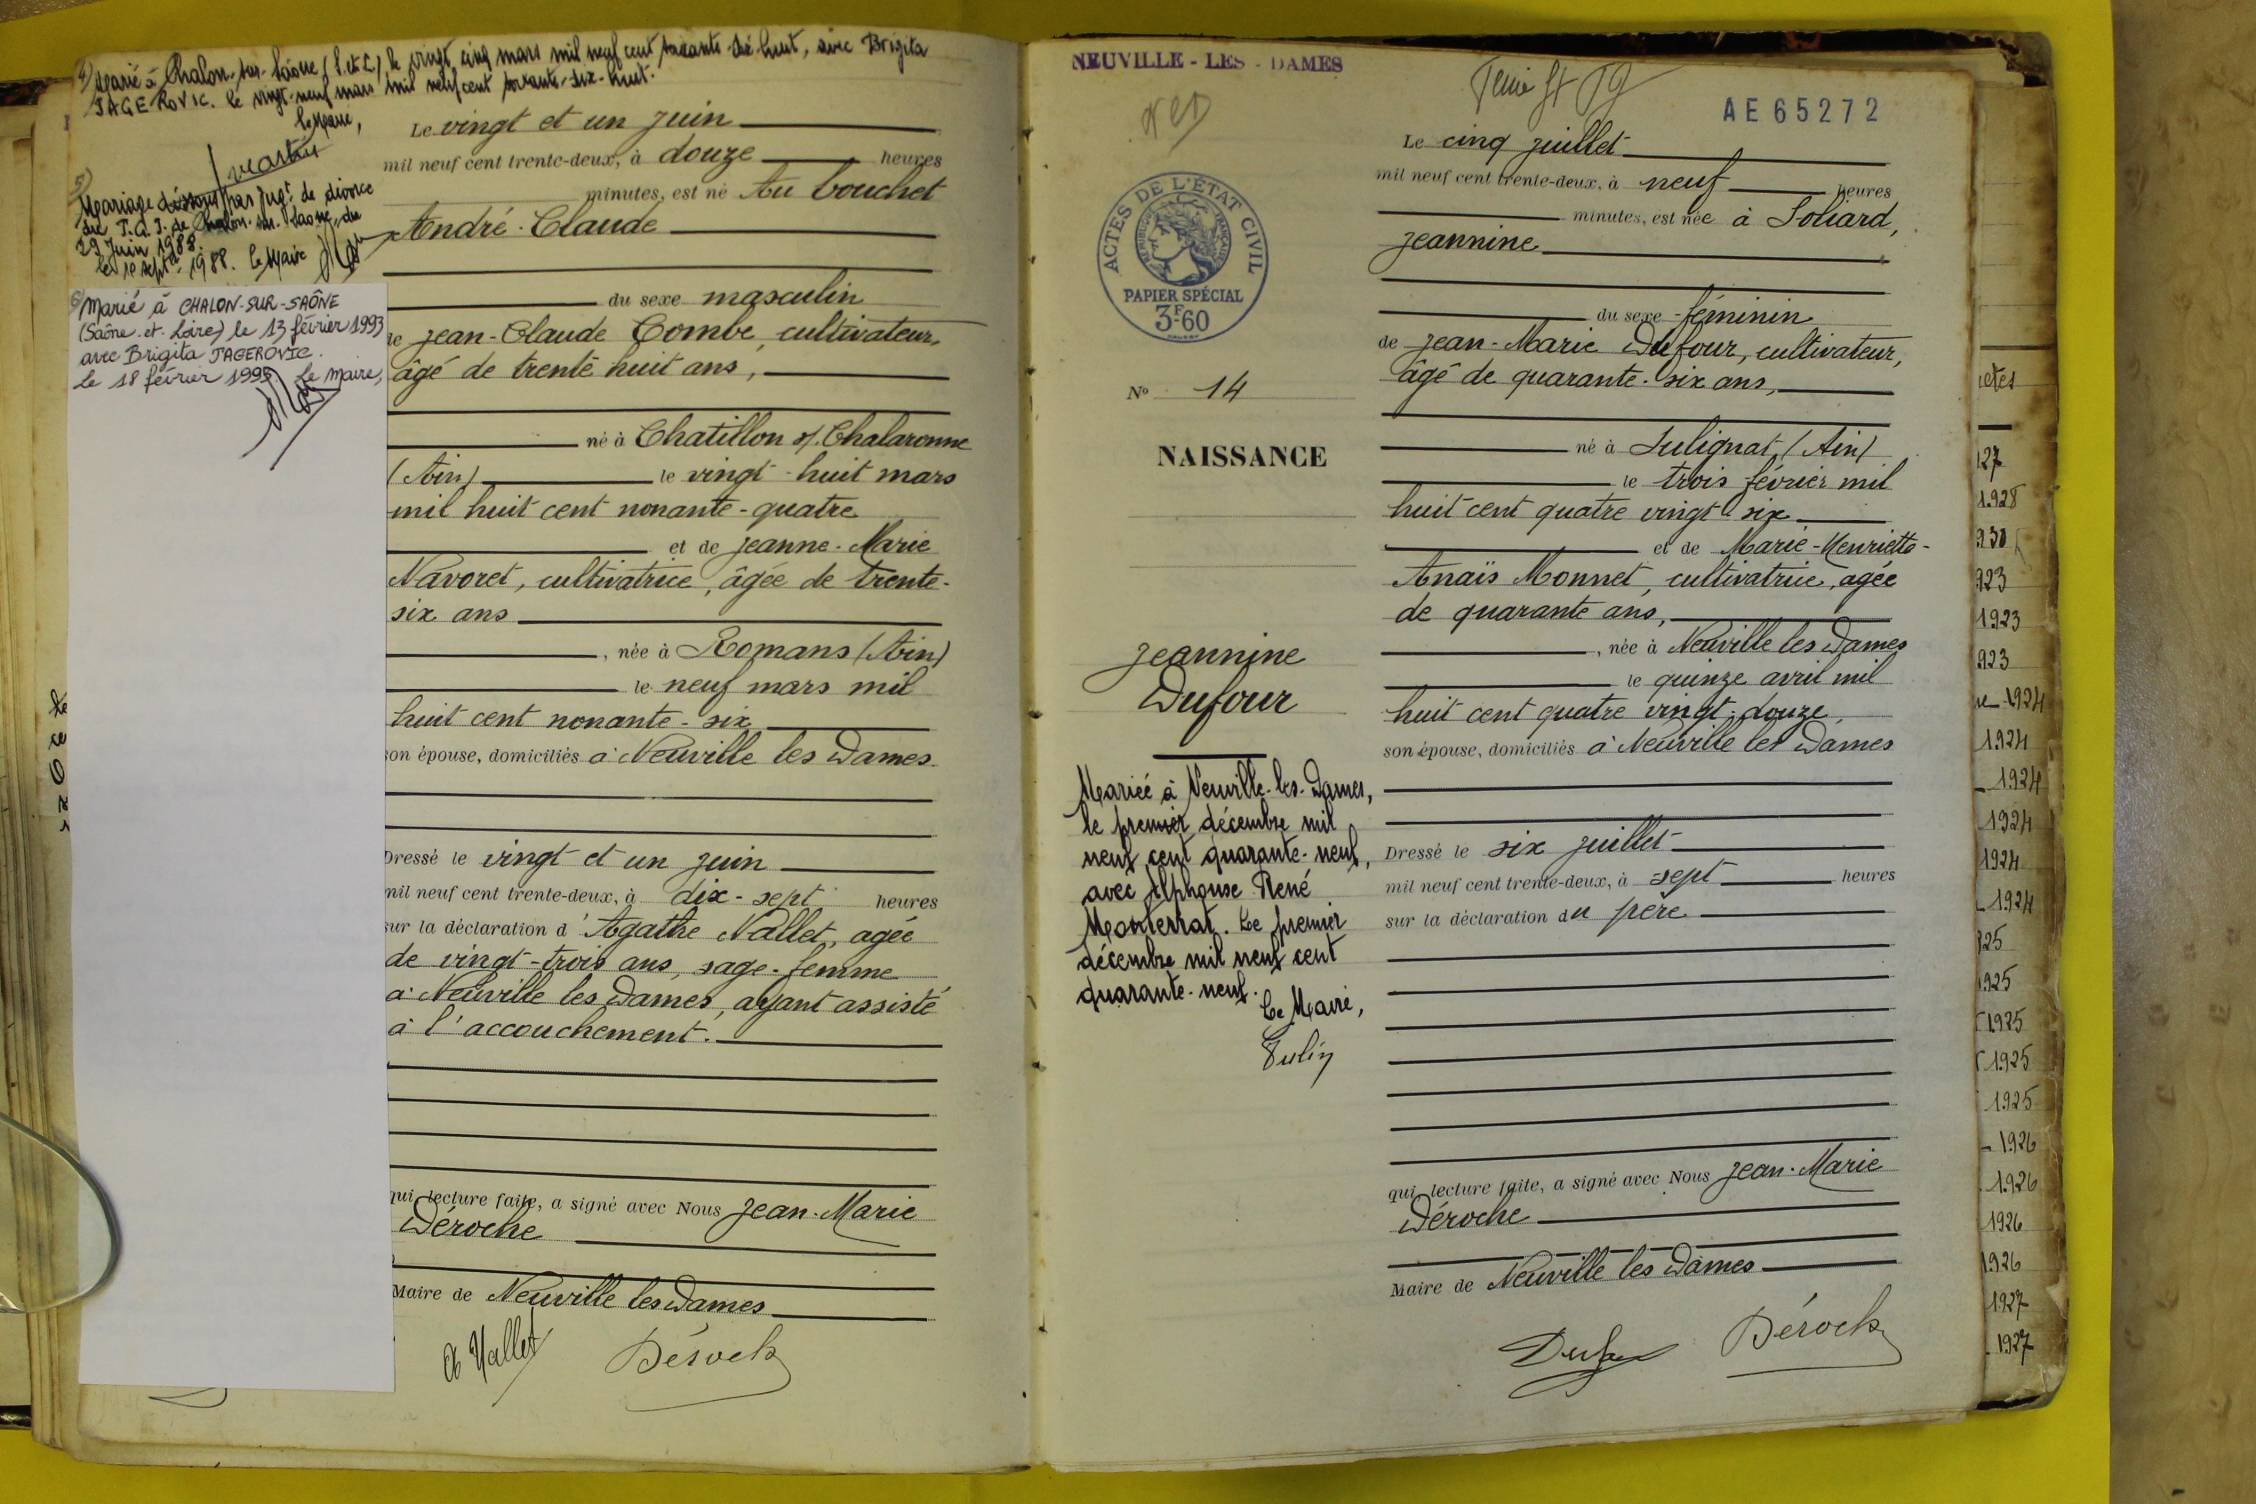 4) Marié à Chalon-sur-Saône (S.et L) le vingt cinq mars mil neuf cent soixante-dix-huit, avec Brigita
JAGEROVIC. Le vingt-neuf mars mil neuf cent soixante-dix-huit.
Le Maire,
5) Mariage dissous par jugt de divorce
du T.G.I. de Chalon-sur-Saône, du
29 Juin 1988.
le 1e septe 1988. Le Maire
6) Marié à CHALON-SUR-SAÔNE
(Saône-et-Loire) le 13 février 1993
avec Brigita JAGEROVIC.
le 18 février 1993. Le maire,
Le vingt et un juin
mil neuf cent trente-deux, à douze heures
minutes, est né Au bouchet
André-Claude
du sexe masculin
de Jean-Claude Combe, cultivateur,
âgé de trente huit ans,
né à Chatillon s/. Chalaronne
(Ain) le vingt-huit mars
mil huit cent nonante-quatre
et de Jeanne-Marie
Navoret, cultivatrice, âgée de trente-
six ans
, née à Romans (Ain)
le neuf mars mil
huit cent nonante-six
son épouse, domiciliés à Neuville les Dames
Dressé le vingt et un juin
mil neuf cent trente-deux, à dix-sept heures
sur la déclaration d'Agathe Nallet, agée
de vingt-trois ans, sage-femme
à Neuville les Dames, ayant assisté
à l'accouchement.
qui lecture faite, a signé avec Nous Jean-Marie
Déroche
Maire de Neuville les Dames
A Nallet Déroche
NEUVILLE-LES-DAMES
AE65272
ACTES DE L'ÉTAT CIVIL
RÉPUBLIQUE FRANÇAISE
PAPIER SPÉCIAL
3F60
No 14
NAISSANCE
Jeannine
Dufour
Mariée à Neuville-les-Dames,
le premier décembre mil
neuf cent quarante-neuf,
avec Alphonse René
Monterrat. Le premier
décembre mil neuf cent
quarante-neuf.
Le Maire,
Tulin
Le cinq juillet
mil neuf cent trente-deux, à neuf heures
minutes, est née à Soliard,
Jeannine
du sexe féminin
de Jean-Marie Dufour, cultivateur,
âgé de quarante-six ans,
né à Sulignat (Ain)
le trois février mil
huit cent quatre vingt six
et de Marie-Henriette-
Anaïs Monnet, cultivatrice, agée
de quarante ans,
, née à Neuville les Dames
le quinze avril mil
huit cent quatre vingt-douze,
son épouse, domiciliés à Neuville les Dames
Dressé le six juillet
mil neuf cent trente-deux, à sept heures
sur la déclaration du père
qui lecture faite, a signé avec Nous Jean-Marie
Déroche
Maire de Neuville les Dames
Dufour Déroche
ctes
27
1928
930
923
1923
923
1924
1924
1924
1924
1924
1924
925
1925
1925
1925
1925
1926
1926
1926
1926
1927
1927